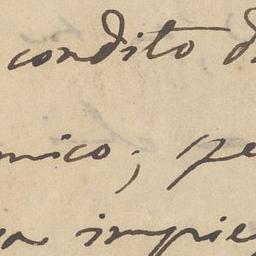 condito d
mico; pe
a impie